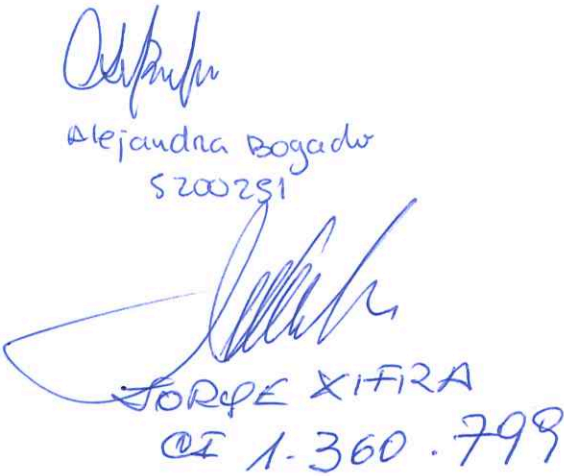 Alejandra Bogado
5200251
JORGE XIFRA
CI 1.360.799